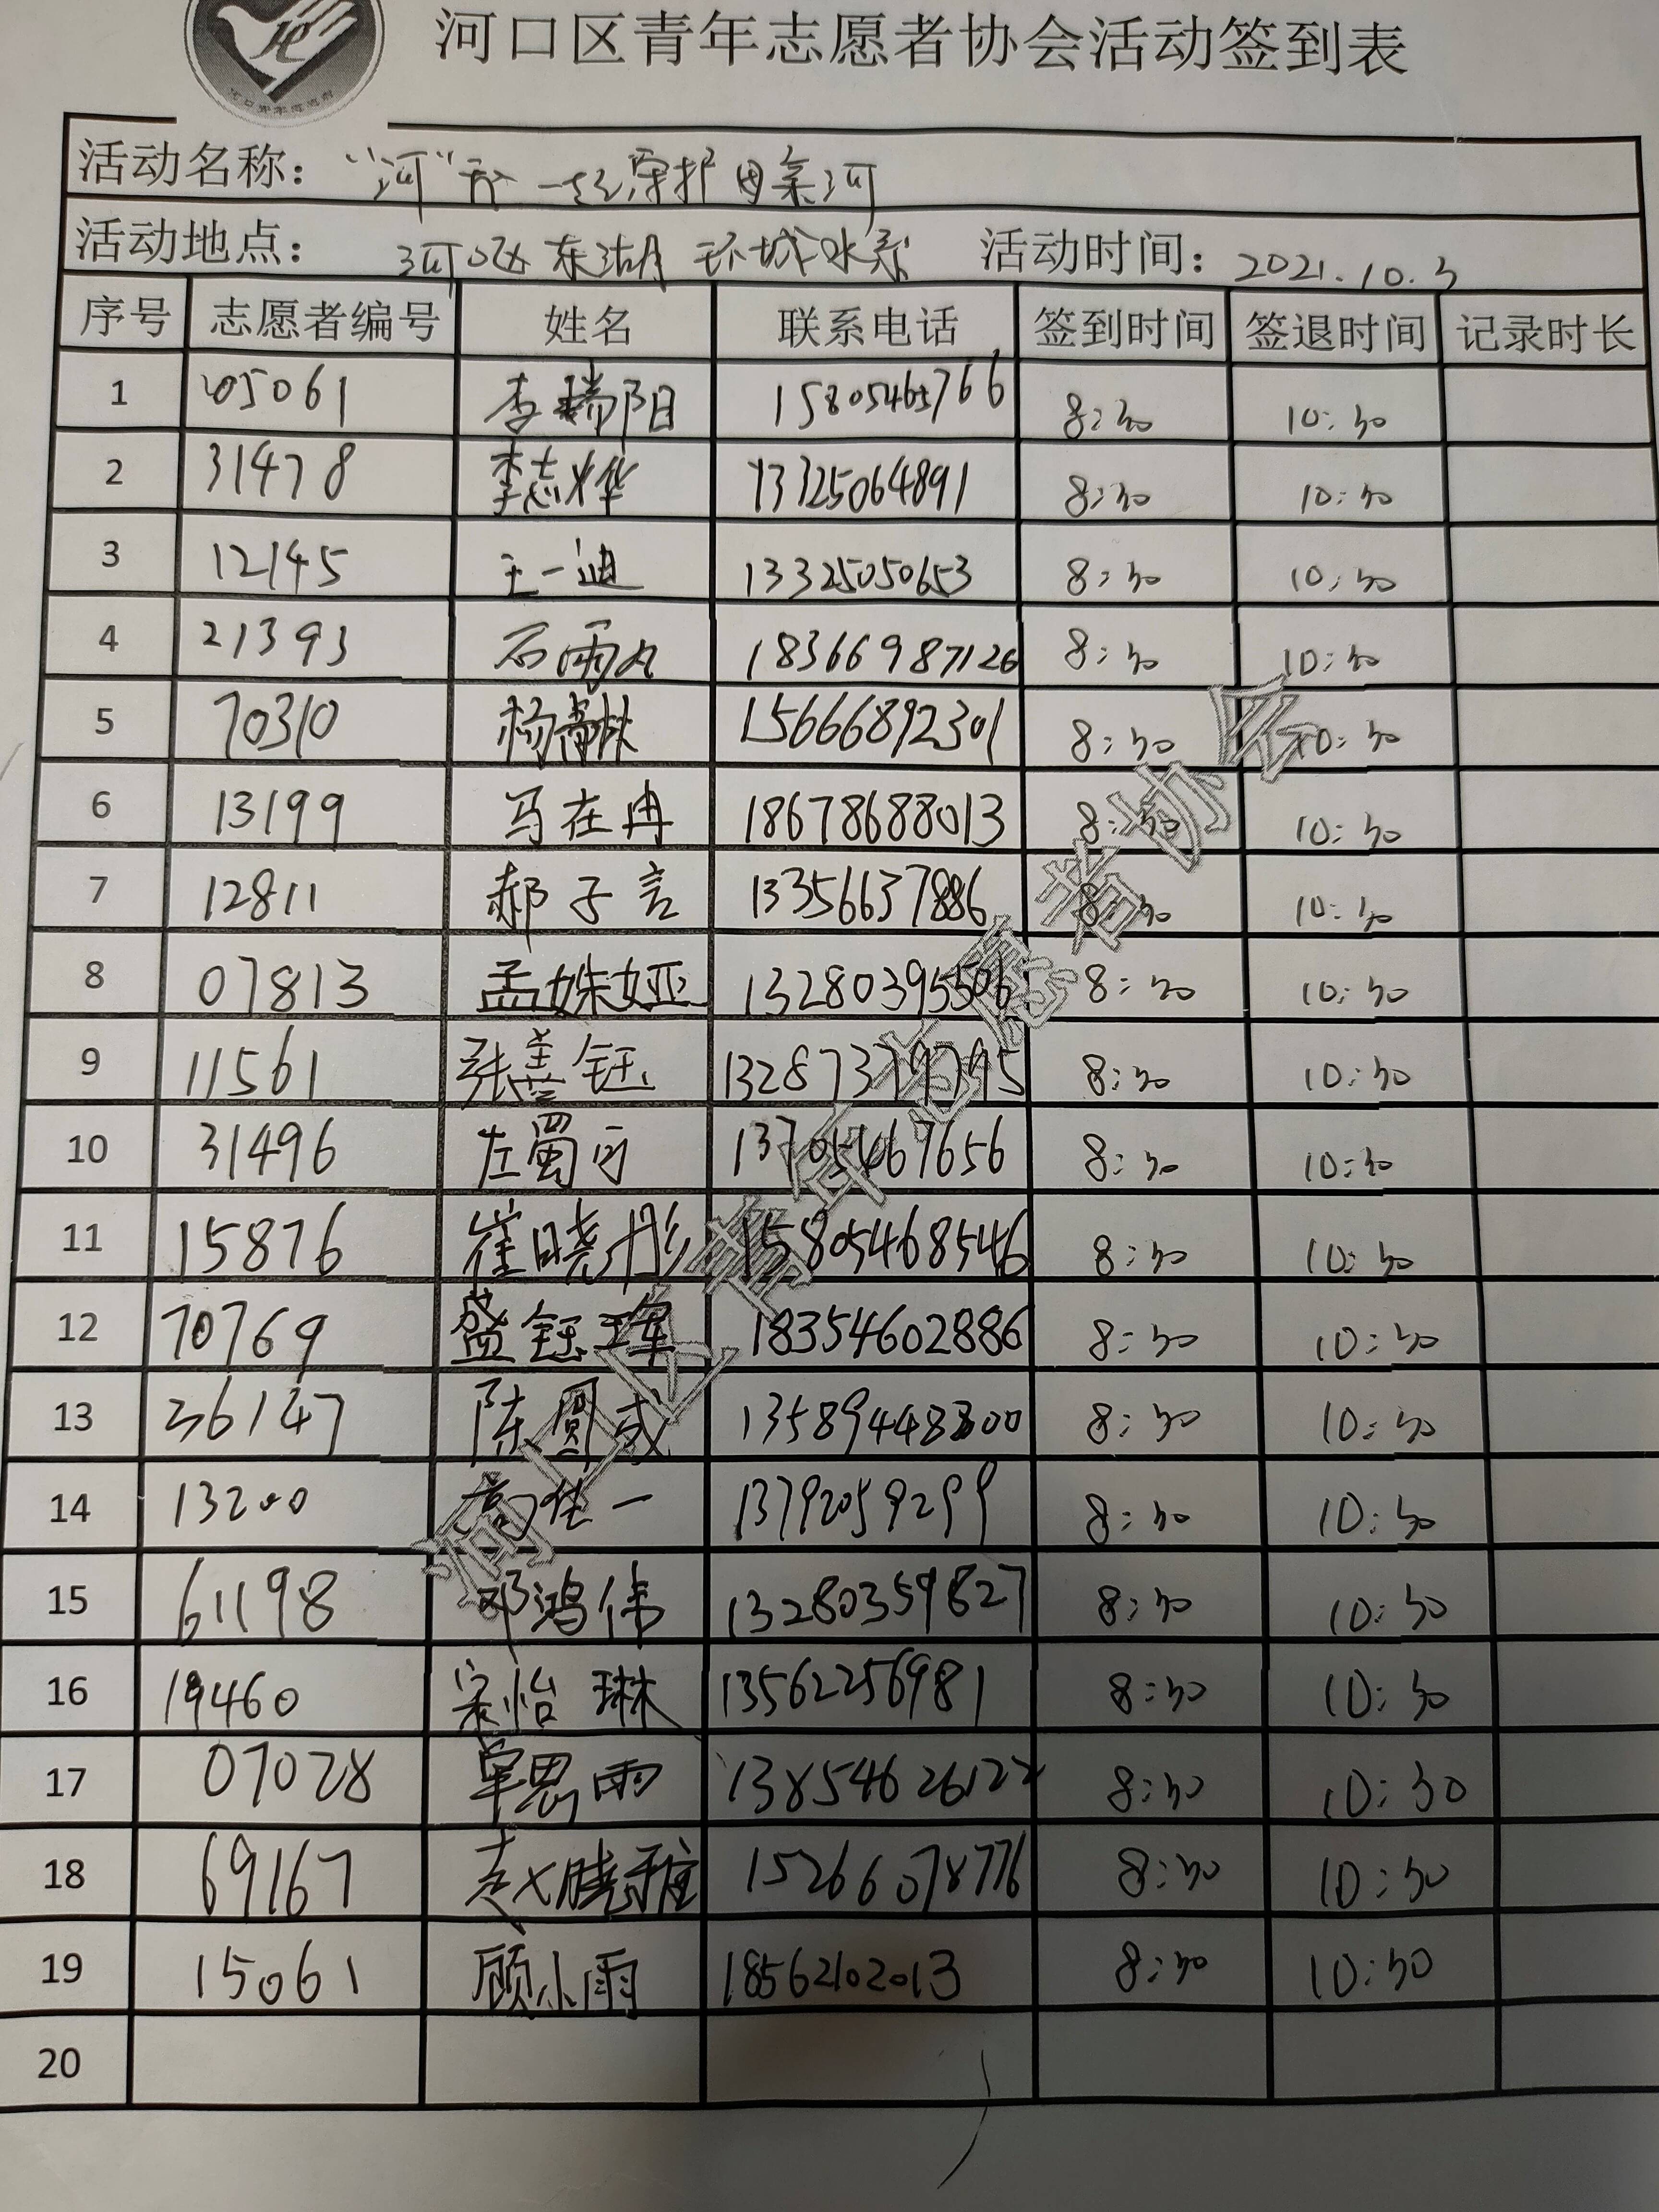 河口区青年志愿者协会活动签到表
河口青年志愿者
活动名称: "河"你一起守护母亲河
活动地点: 河口区东湖环城水系 活动时间: 2021.10.3
序号 志愿者编号 姓名 联系电话 签到时间 签退时间 记录时长
1 05061 李瑞阳 15805465766 8:30 10:30
2 31478 李志烨 13325064891 8:30 10:30
3 12145 王一迪 13325050653 8:30 10:30
4 21393 石雨 18366987126 8:30 10:30
5 70310 杨 15666892301 8:30 10:30
6 13199 马在冉 18678688013 8:30 10:30
7 12811 郝子言 13356637886 8:30 10:30
8 07813 孟姝娅 13280395506 8:30 10:30
9 11561 张善钰 13287379795 8:30 10:30
10 31496 左蜀 13705467656 8:30 10:30
11 15876 崔晓彤 15805468546 8:30 10:30
12 70769 盛钰珲 18354602886 8:30 10:30
13 36147 陈圆成 13589448300 8:30 10:30
14 13200 高佳一 13792059299 8:30 10:30
15 61198 邓鸿伟 13280359827 8:30 10:30
16 19460 宋怡琳 13562256981 8:30 10:30
17 07028 单思雨 13854626122 8:30 10:30
18 69167 赵晓雅 15266078776 8:30 10:30
19 15061 顾小雨 18562102013 8:30 10:30
20
河口区青年志愿者协会